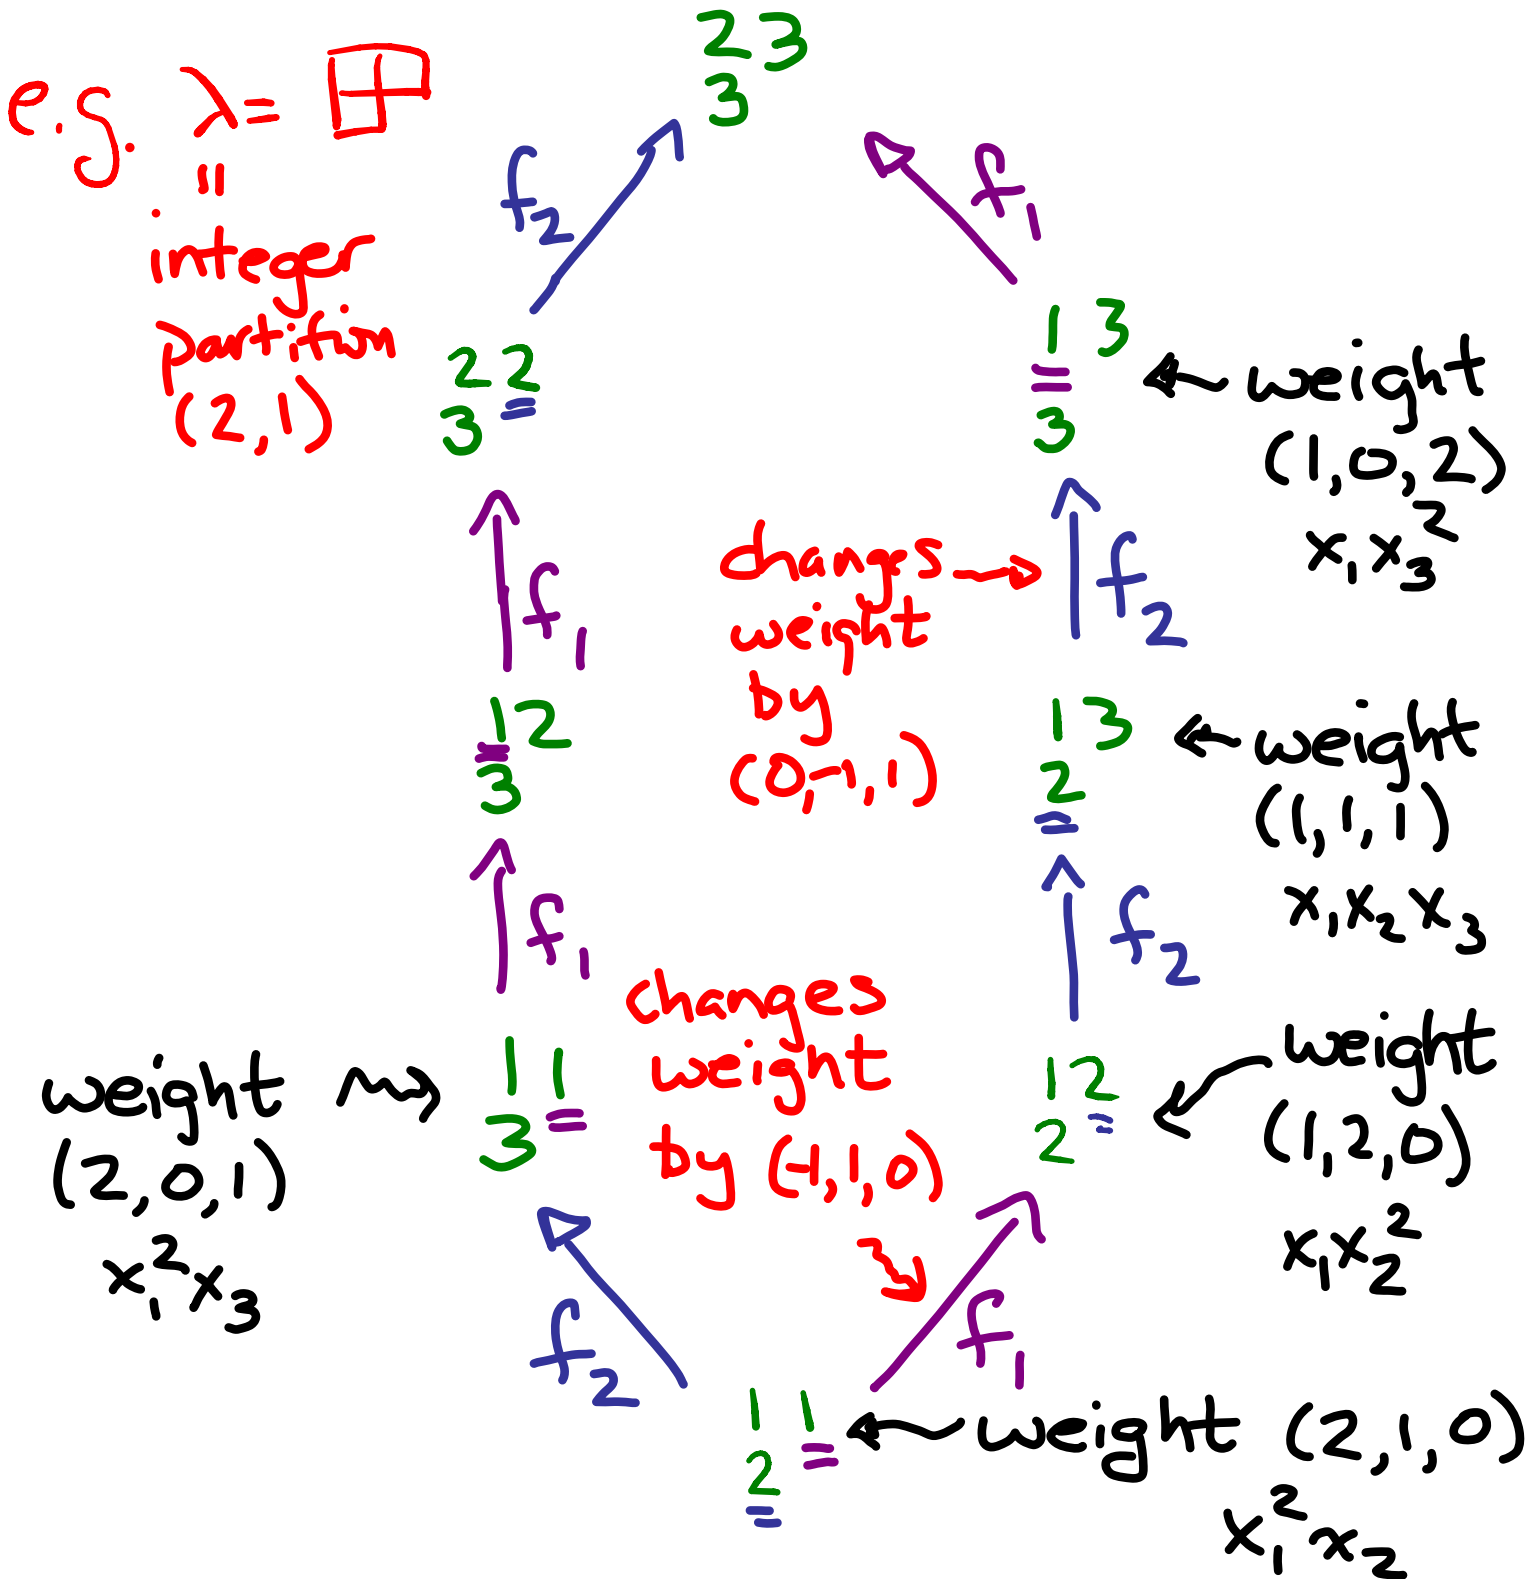 e.g. λ =
"
integer
partition
(2,1)
2 3
3
f₂
f₁
2 2
3
1 3
3
← weight
(1,0,2)
x₁x₃²
f₁
changes →
weight
by
(0,-1,1)
f₂
1 2
3
1 3
2
← weight
(1,1,1)
x₁x₂x₃
f₁
f₂
weight
(2,0,1)
x₁²x₃
1 1
3
changes
weight
by (-1,1,0)
1 2
2
weight
(1,2,0)
x₁x₂²
f₂
f₁
1 1
2
← weight (2,1,0)
x₁²x₂